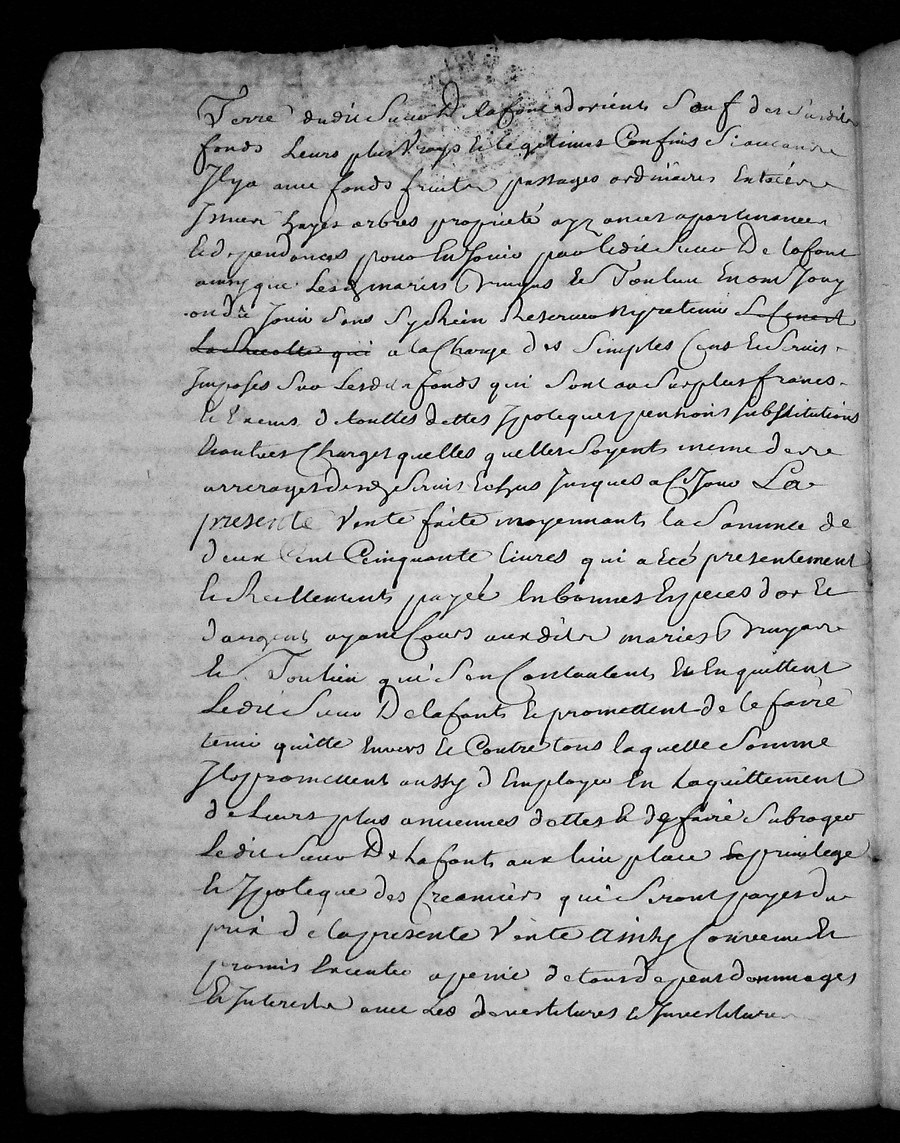 Terre dudit Sieur De lafont dorient Sauf des Susdits
fonds Leurs plus Vrays Et legitimes Confins Siaucuns
Ilya avec fonds fruits passages ordinaires Entrées
Issues hayes arbres proprieté ayzances apartenances
Et dependances pour En Jouir par ledit Sieur De lafont
ainsy que Lesd maries Et Toulieu En ont Jouy
ou dû Jouir Sans Sy Rien Reserver Ny retenir
La Recolte qui a la Charge des Simples Cens Et Servis
Imposes Sur Lesdits fonds qui Sont au Surplus francs
Et Exems de touttes dettes Ypoteques pensions Substitutions
Et autres Charges quelles quelles Soyent meme des
arrerages desd Servis Echus Jusques a Ce Jour La
presente Vente faite moyennant la Somme de
deux Cent Cinquante livres qui a eté presentement
Et Reellement payée En bonnes Especes dor Et
dargent ayant Cours auxdits maries
Et Toulieu qui Sen Contentent Et En quittent
Ledit Sieur De lafont Et promettent de le faire
tenir quitte Envers Et Contre tous laquelle Somme
Ils promettent aussy d Employer En Laquittement
de Leurs plus anciennes dettes Et de faire Subroger
Ledit Sieur De Lafont aux lieu place Et privilege
Et Ypoteque des Creanciers qui Seront payes du
prix de la presente Vente ainsy Convenu Et
promis Executer a peine de tous depens dommages
Et Interets avec Les devestitures Et Investitures